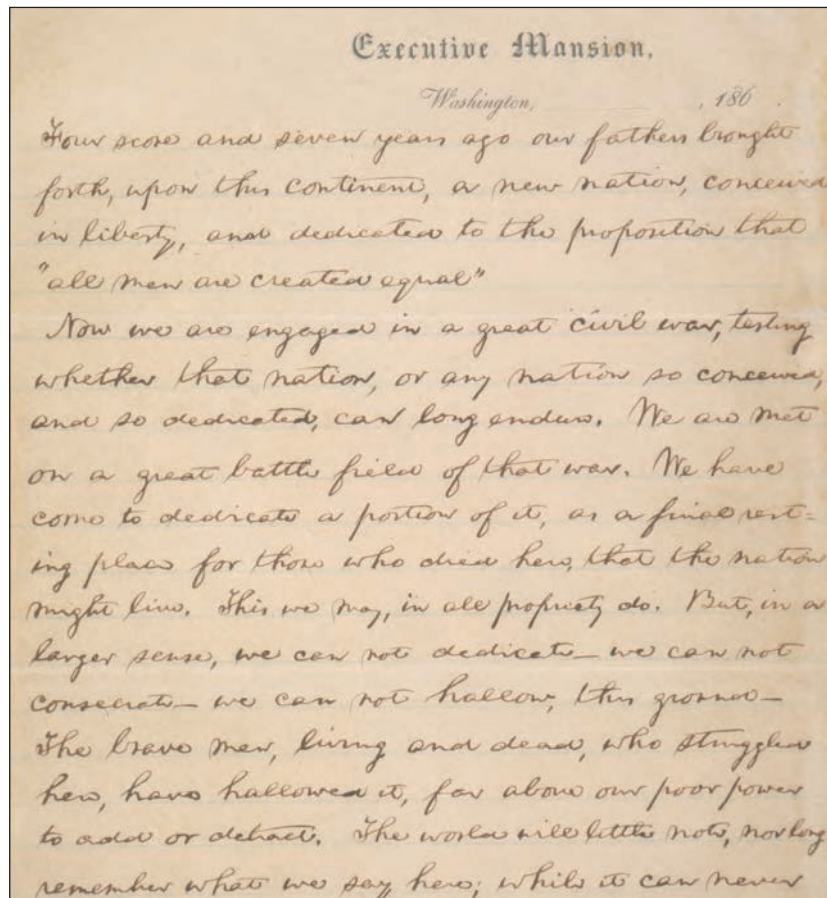 Executive Mansion,
Washington, , 186 .
Four score and seven years ago our fathers brought
forth, upon this continent, a new nation, conceived
in liberty, and dedicated to the proposition that
"all men are created equal"
Now we are engaged in a great civil war, testing
whether that nation, or any nation so conceived,
and so dedicated, can long endure. We are met
on a great battle field of that war. We have
come to dedicate a portion of it, as a final rest=
ing place for those who died here, that the nation
might live. This we may, in all propriety do. But, in a
larger sense, we can not dedicate— we can not
consecrate— we can not hallow, this ground—
The brave men, living and dead, who struggled
here, have hallowed it, far above our poor power
to add or detract. The world will little note, nor long
remember what we say here; while it can never